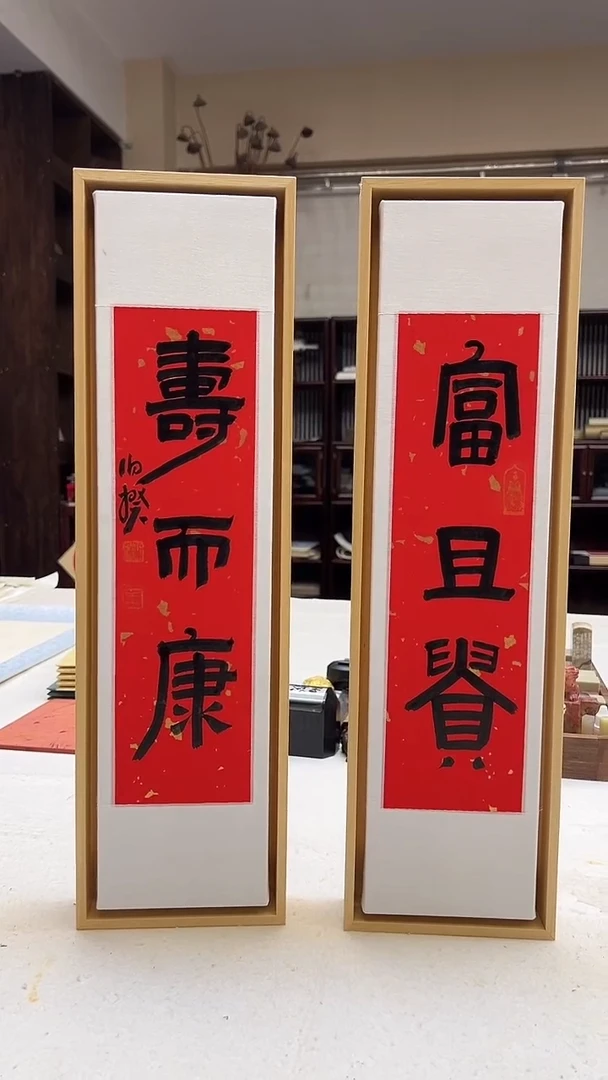 富且貴
壽而康